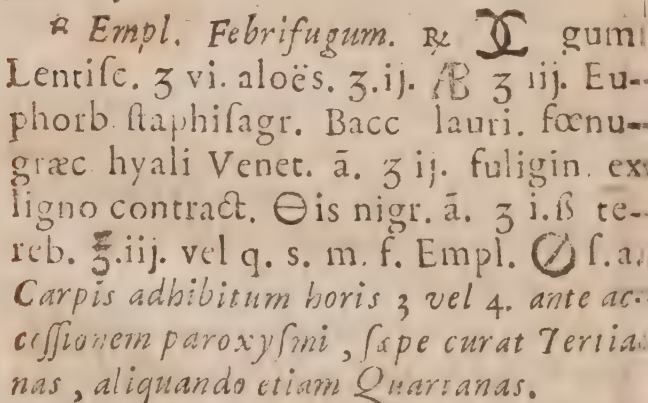 * Empl. Febrifugum. ℞ gumi
Lentiſc. ʒ vi. aloës. ʒ.ij. Æ ʒ iij. Eu-
phorb. ſtaphiſagr. Bacc lauri. fœnu-
græc hyali Venet. ā. ʒ ij. fuligin. ex
ligno contract. ⊖is nigr. ā. ʒ i.ß te-
reb. ℥.iij. vel q. s. m. f. Empl. ſ.a.
Carpis adhibitum horis 3 vel 4. ante ac-
ceſſionem paroxyſmi, ſæpe curat Tertia-
nas, aliquando etiam Quartanas.